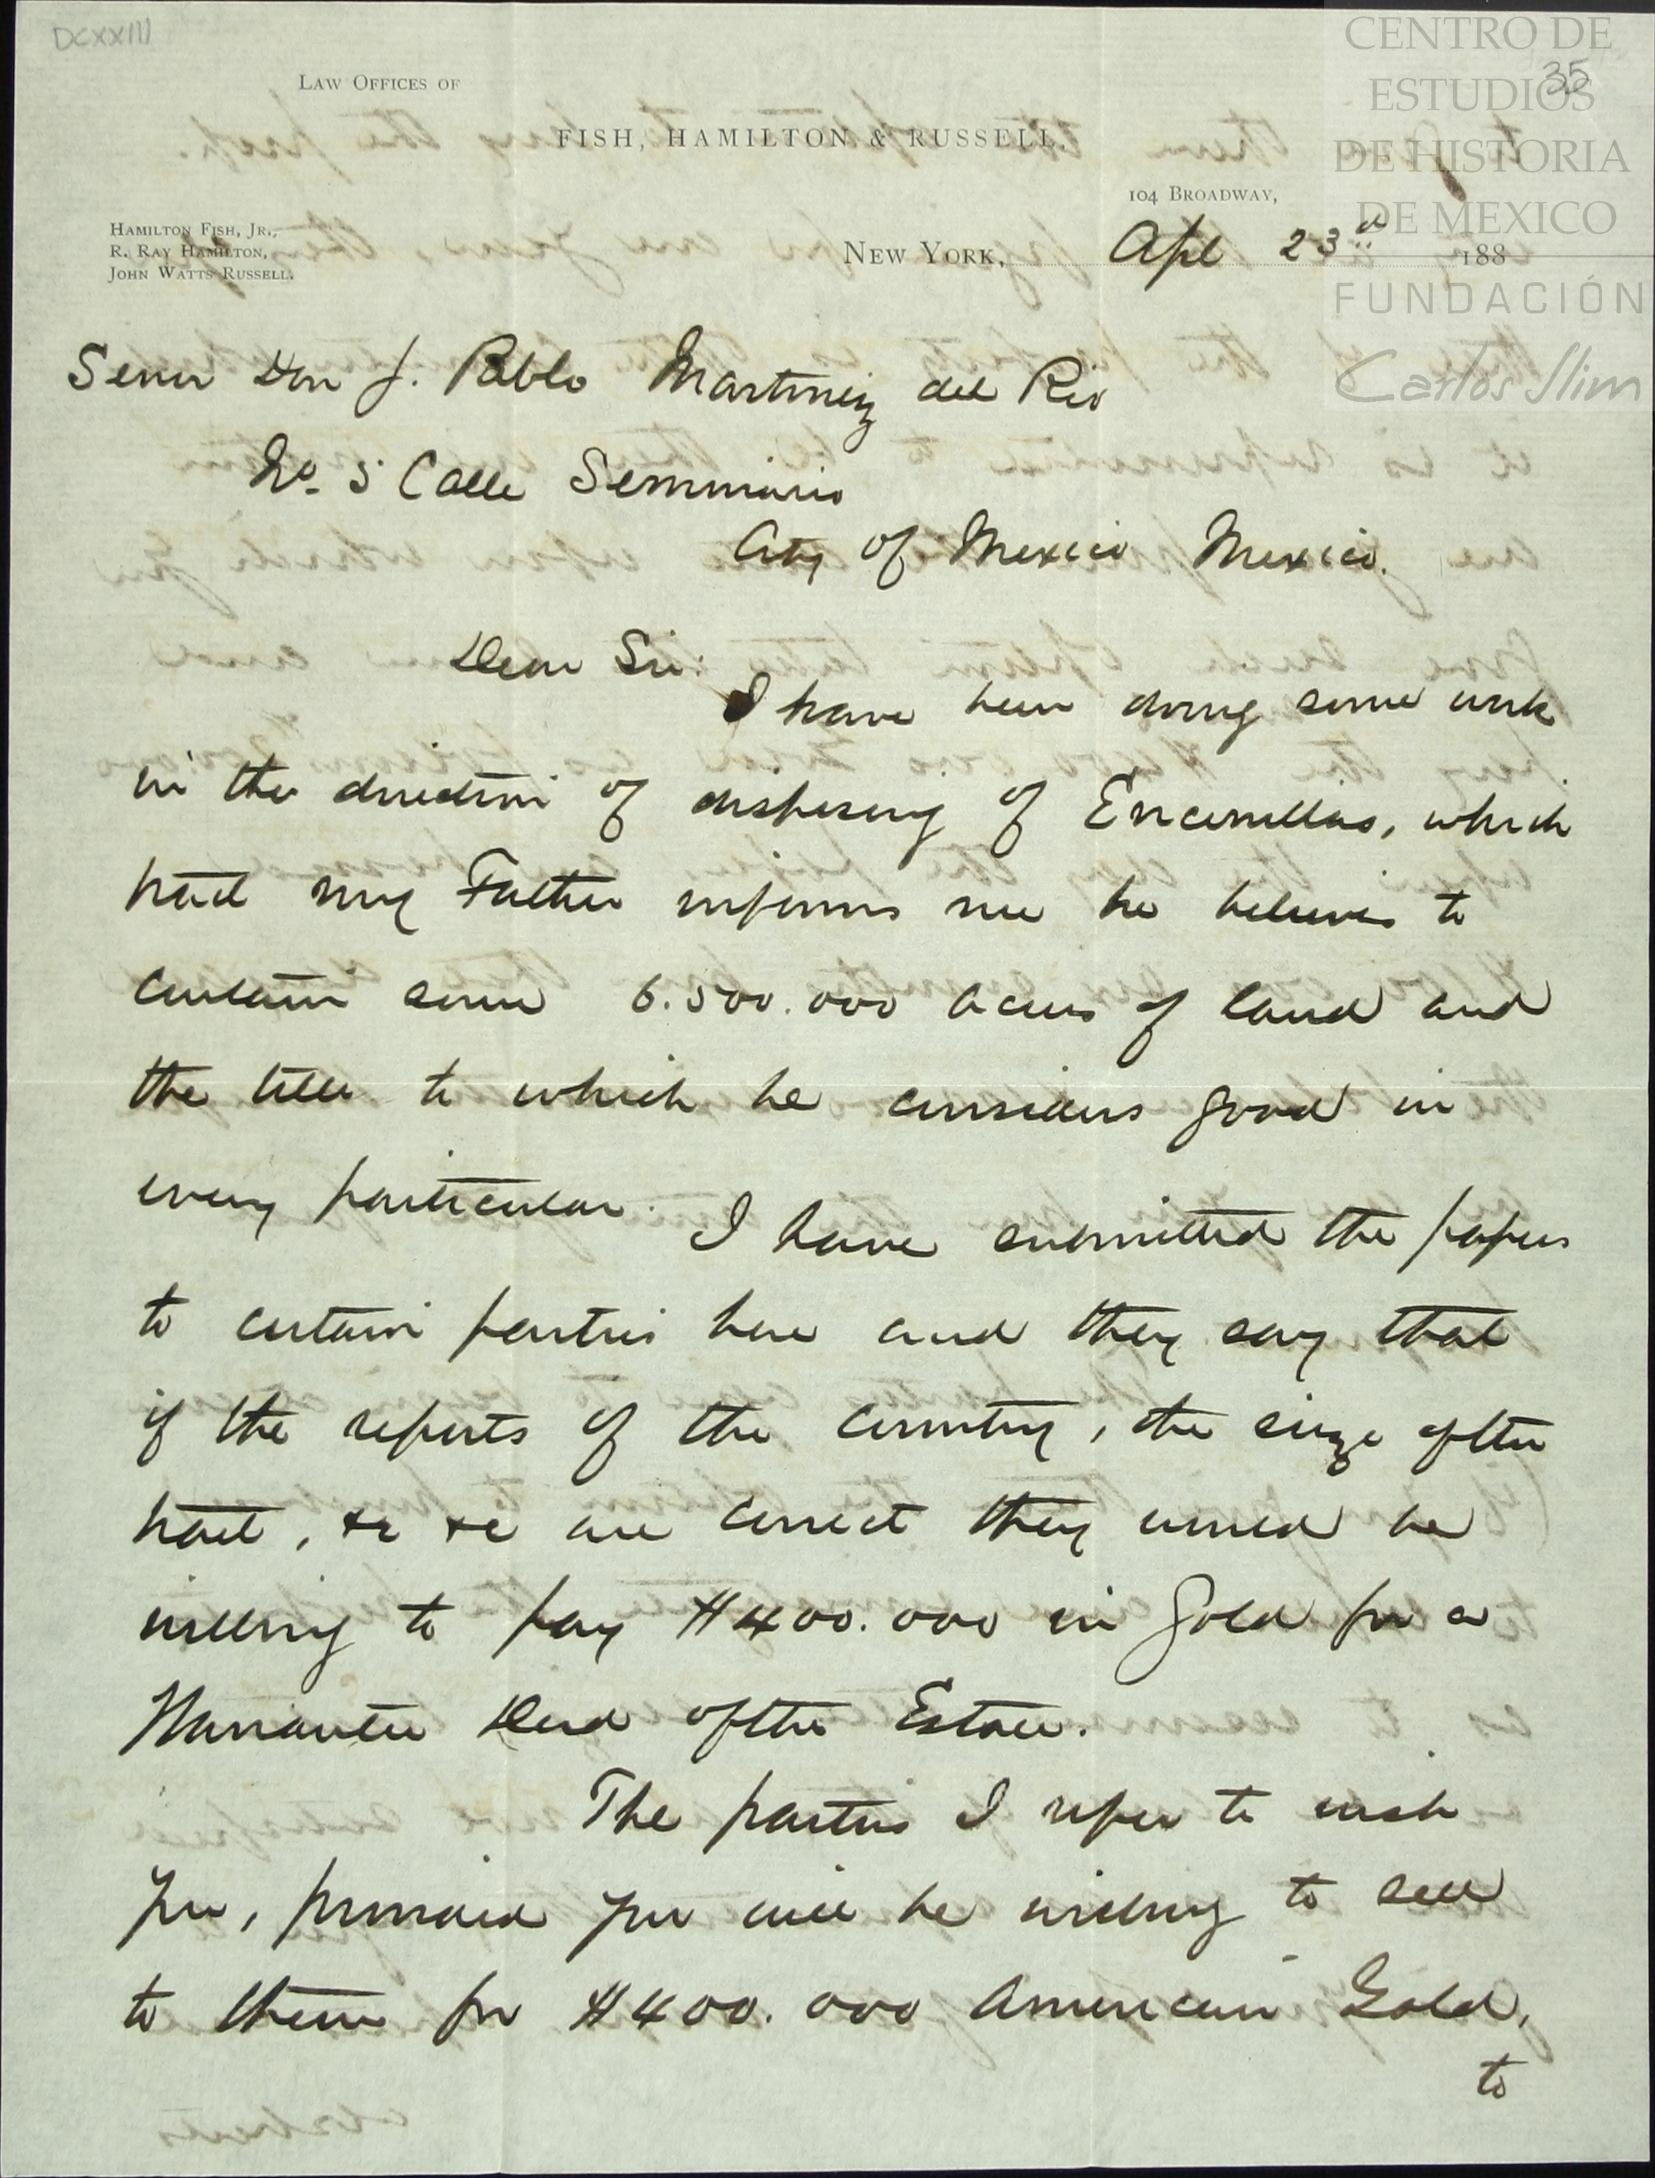 DCXXIII
35
CENTRO DE
ESTUDIOS
DE HISTORIA
DE MEXICO
FUNDACIÓN
Carlos Slim
Law Offices of
FISH, HAMILTON & RUSSELL,
104 Broadway,
Hamilton Fish, Jr.,
R. Ray Hamilton,
John Watts Russell.
New York, Apl 23d 188
Senor Don J. Pablo Martinez del Rio
No. 5 Calle Seminario
City of Mexico Mexico.
Dear Sir:
I have been doing some work
in the direction of disposing of Encinillas, which
tract my Father informs me he believes to
contain some 6.500.000 acres of land and
the title to which he considers good in
every particular. I have submitted the papers
to certain parties here and they say that
if the reports of the country, the size of the
tract, &c &c are correct they would be
willing to pay $400.000 in Gold for a
Warrantee Deed of the Estate.
The parties I refer to wish
you, provided you will be willing to sell
to them for $400.000 American Gold,
to